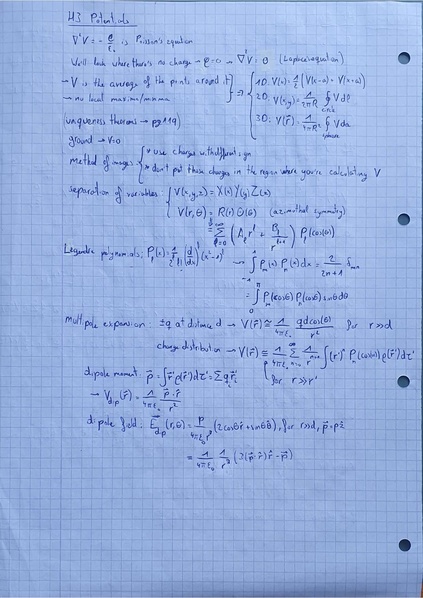 H3 Potentials
∇²V = - ρ/ε₀ is Poisson's equation
We'll look where there's no charge → ρ=0 → ∇²V=0 (Laplace equation)
→ V is the average of the points around it
→ no local maxima/minima
1D: V(x) = 1/2 (V(x-a) + V(x+a))
2D: V(x,y) = 1/2πR ∮ V dl circle
3D: V(r⃗) = 1/4πR² ∮ V da sphere
uniqueness theorems → pg 119
ground → V=0
method of images * use charges with different sign
* don't put these charges in the region where you're calculating V
separation of variables: V(x,y,z) = X(x)Y(y)Z(z)
V(r,θ) = R(r)Θ(θ) (azimuthal symmetry)
= ∑ l=0 ∞ (A_l r^l + B_l/r^(l+1)) P_l(cosθ)
Legendre polynomials: P_l(x) = 1/2^l l! (d/dx)^l (x²-1)^l → ∫ -1 1 P_m(x) P_n(x) dx = 2/2n+1 δ_mn
= ∫ 0 π P_m(cosθ) P_n(cosθ) sinθ dθ
multipole expansion: ±q at distance d → V(r⃗) ≅ 1/4πε₀ qd cos(θ)/r² for r>>d
charge distribution → V(r⃗) = 1/4πε₀ ∑ n=0 ∞ 1/r^(n+1) ∫ (r')^n P_n(cosθ) ρ(r⃗') dτ'
for r>>r'
dipole moment p⃗ = ∫ r⃗' ρ(r⃗') dτ' = ∑ q_i r⃗'_i
→ V_dip(r⃗) = 1/4πε₀ p⃗·r̂/r²
dipole field: E⃗_dip(r,θ) = p/4πε₀r³ (2cosθ r̂ + sinθ θ̂), for r>>d, p⃗=pẑ
= 1/4πε₀ 1/r³ (3(p⃗·r̂)r̂ - p⃗)